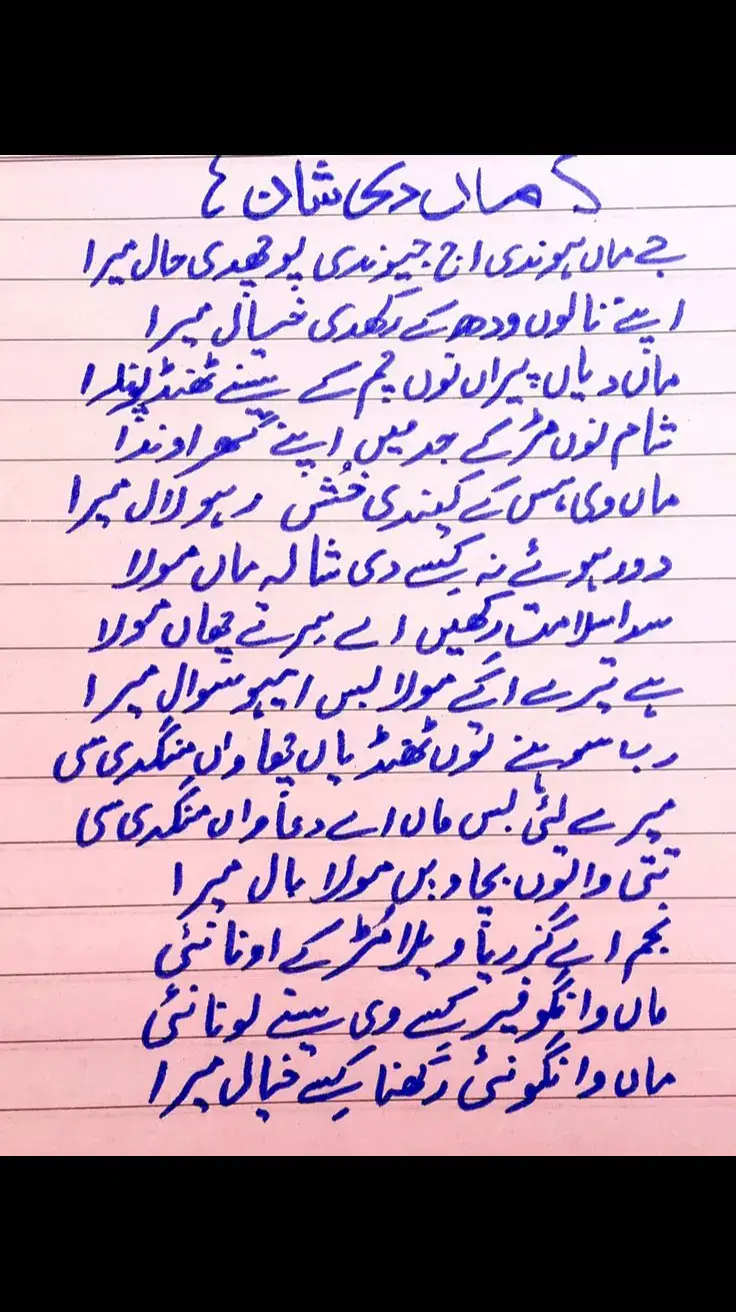 ماں دی شان
جے ماں ہوندی اج جیوندی پوچھدی حال میرا
اپنے نالوں ودھ کے رکھدی خیال میرا
ماں دیاں پیراں نوں چم کے سینے ٹھنڈ پوندا
شام نوں مڑ کے جد میں اپنے گھر اوندا
ماں وی ہس کے کہندی خُش رہو لال میرا
دور ہوئے نہ کسے دی شالہ ماں مولا
سدا سلامت رکھیں اے سر تے چھاں مولا
ہے تیرے اگے مولا بس ایہو سوال میرا
رب سوہنے توں ٹھنڈیاں چھاواں منگدی سی
میرے لئی بس ماں اے دعاواں منگدی سی
تتی وا توں بچاویں مولا بال میرا
نجم اے گزریا ویلا مُڑ کے اونا نئی
ماں وانگو فیر کسے وی سینے لونا نئی
ماں وانگو نئی رکھنا کسے خیال میرا